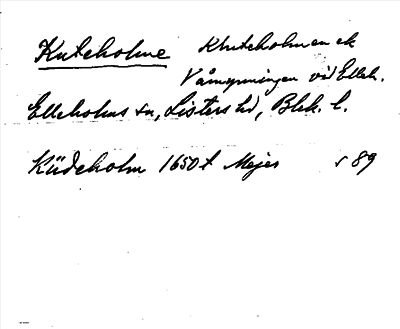 Kuteholme Kluteholmen ek
Våmynningen vid Elleh.
Elleholms sn, Listers hd, Blek. l.
Küdeholm 1650 t Mejer s 89